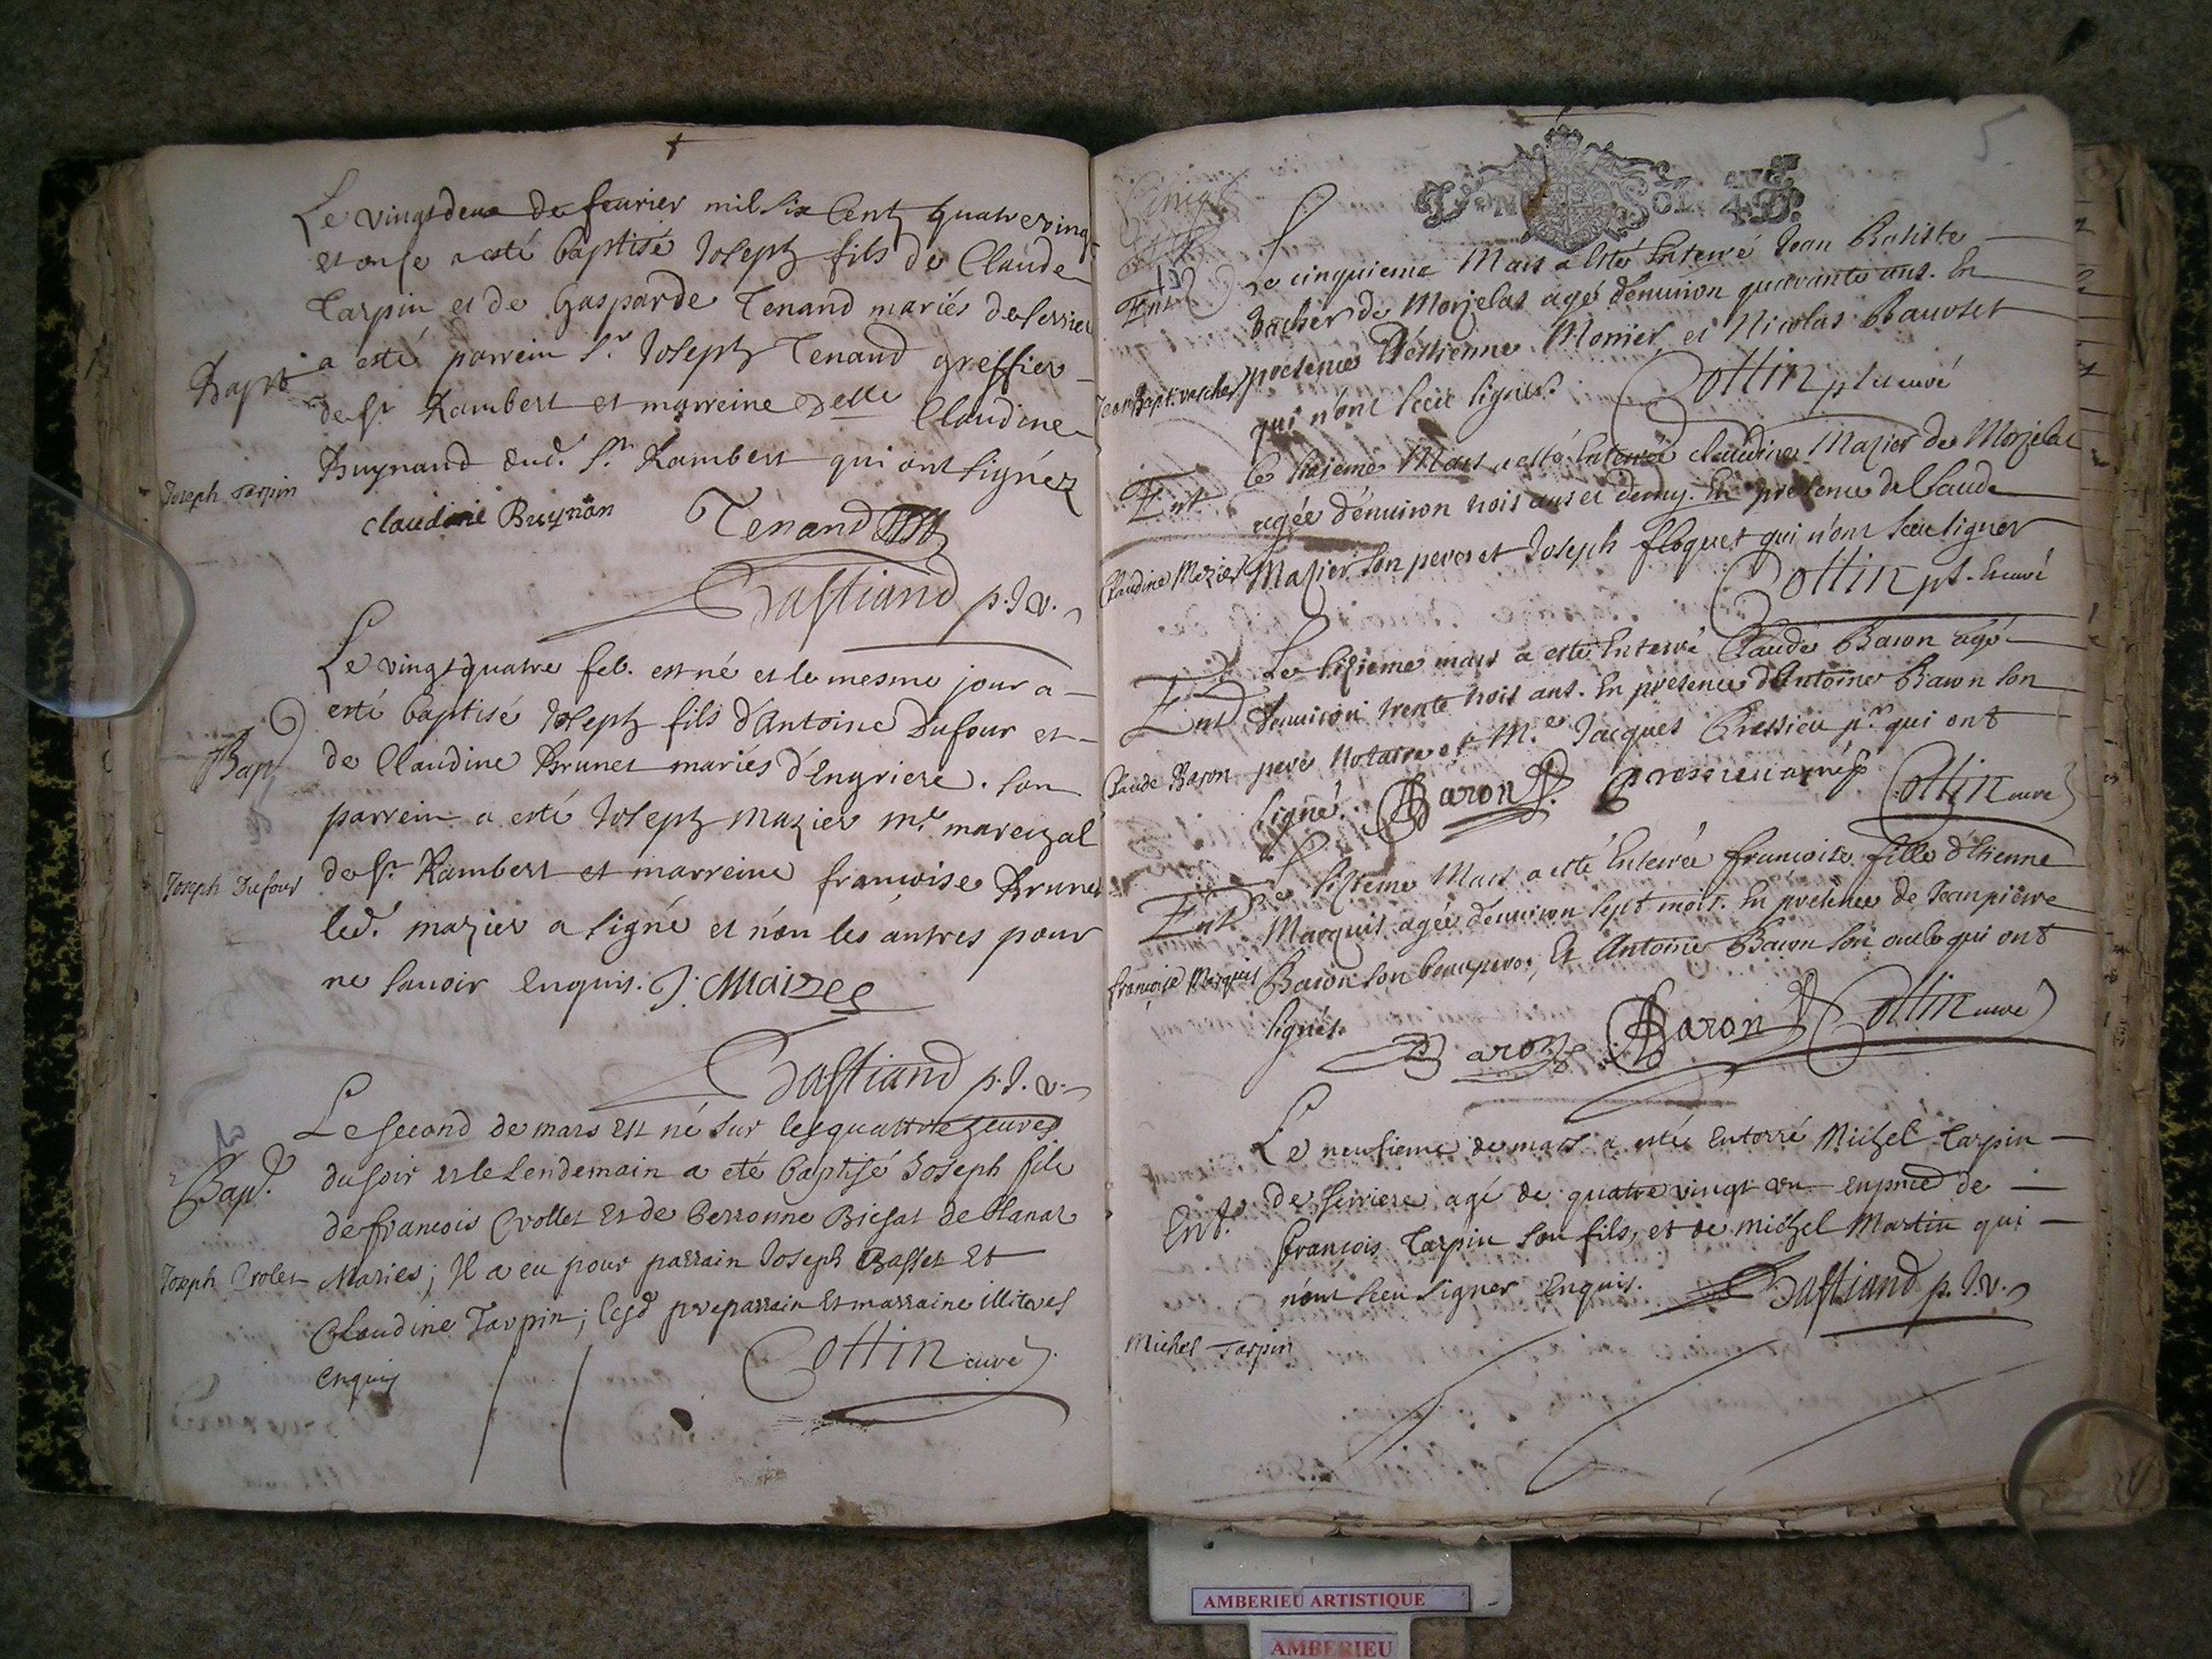 Le vingt deux de feurier mil six Cent quatre vingt
et onse a esté baptisé Joseph fils de Claude
Tarpin et de Gasparde Tenand mariés de serriere
Bapt. a esté parrein Sr. Joseph Tenand greffier
de St Rambert et marreine Delle Claudine
Buynand dud. St. Rambert qui ont signéz
Joseph Tarpin
claudine Buynan Tenand
Bastiand p. J. v.
Le vingt quatre feb. est né et le mesme jour a
esté baptisé Joseph fils d'Antoine Dufour et
Bapt de Claudine Brunet mariés d'Engriere. son
parrein a esté Joseph Mazier me. marezal
Joseph Dufour de St. Rambert et marreine françoise Brunet
led. mazier a signé et non les autres pour
ne sauoir Enquis. J. Maizee
Bastiand p. J. v.
Le second de mars est né sur les quattre heures
du soir et le Lendemain a eté baptisé Joseph fils
Bapt. de francois Crollet et de Perronne Biesat de blanaz
Joseph Crolet Maries; Il a eu pour parrain Joseph Basset Et
Claudine Tarpin; lesd pere parrain Et marraine illiteres
enquis Cottin curé
5
DEN SOL 4 D.
Ent. Le cinquieme Mars a esté Enterré Jean Batiste
vacher de Morjelas agé denuiron quarante ans. En
Jean Bapt. vascher presence D'estienne Monier et Nicolas Bauoset
qui n'ont sceu signer. Cottin pt curé
Ent. le sixieme Mars a esté Enterrée claudine Mazier de Morjelas
agée denuiron trois ans et demy. En presence de Claude
Claudine Mezier Mazier son pere et Joseph floquet qui n'ont sceu signer
Cottin pt. curé
Le sisieme mars a esté Enterré Claude Baron agé
Ent. denuiron trente trois ans. En presence d'Antoine Baron son
Claude Baron pere Notaire et Me. Jacques Bressieu pr. qui ont
signé. Baron Cottin curé
Ent. Le sisieme Mars a esté Enterrée francoise fille d'étienne
Marquis agée denuiron sept mois. En presence de Jean pierre
françoise Marquis Baron son beaupere, Et Antoine Baron son oncle qui ont
signés. Baron Baron Cottin curé
Le neufieme de mars a estée enterré Michel Tarpin
Ent. de Serriere agé de quatre vingt un en pnce de
françois Tarpin son fils, et de michel Martin qui
n'ont sceu signer Enquis. Bastiand p. J. v.
Michel Tarpin
AMBERIEU ARTISTIQUE
AMBERIEU